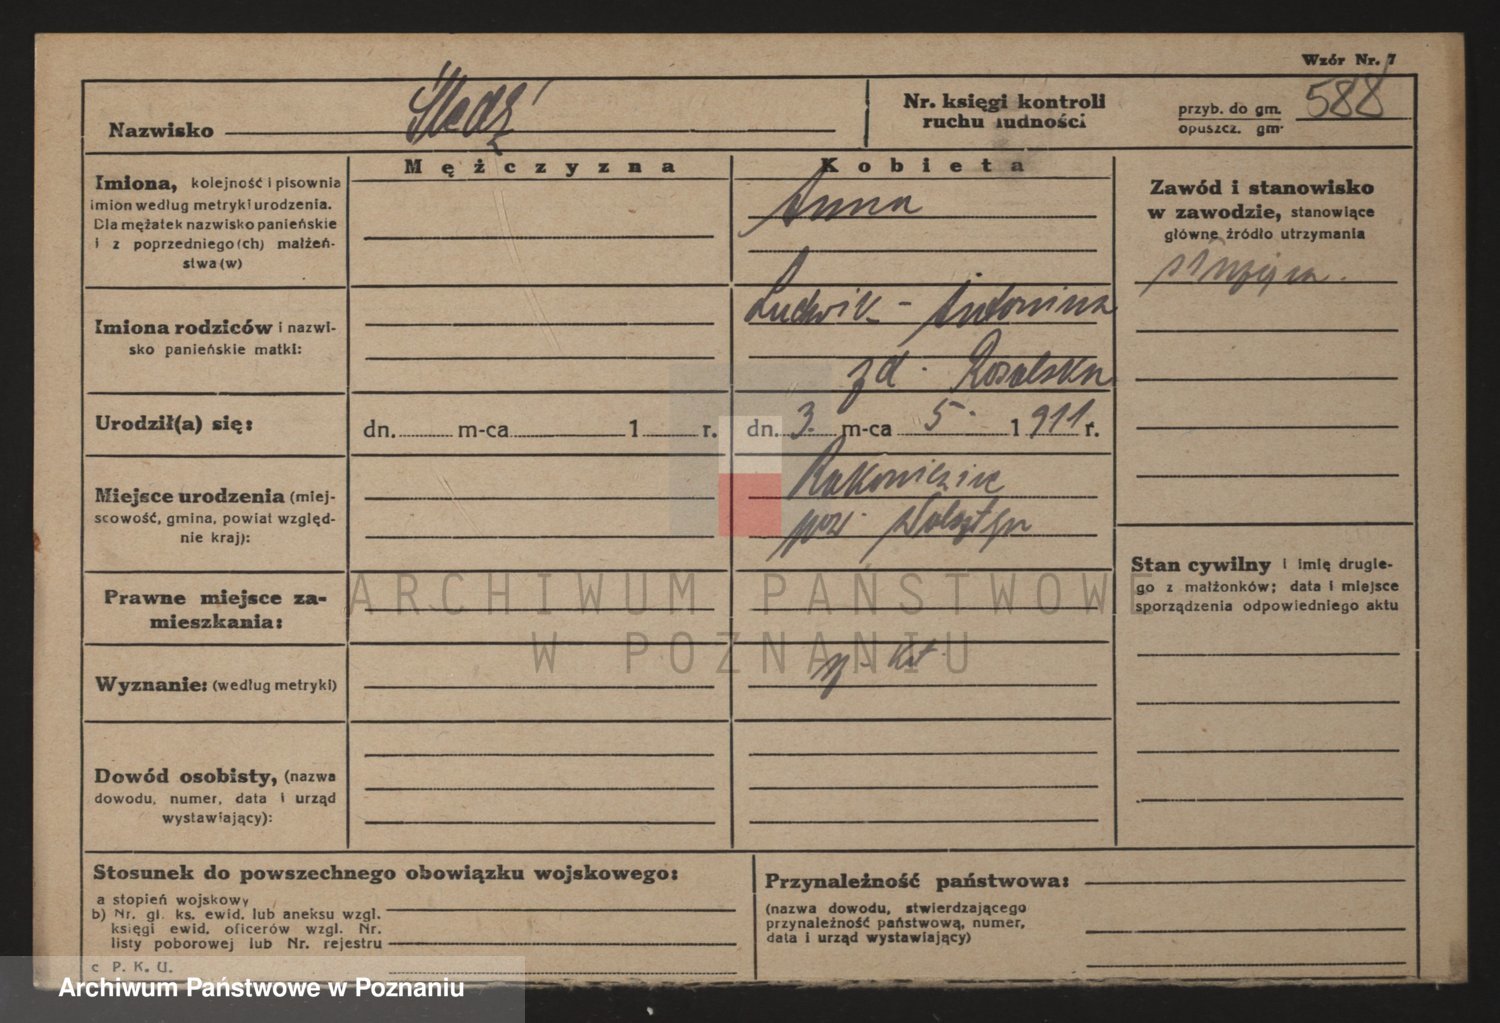 Wzór Nr. 7
Nazwisko Śledź
Nr. księgi kontroli
ruchu ludności
przyb. do gm.
opuszcz. gm.
588
Mężczyzna
Kobieta
Imiona, kolejność i pisownia
imion według metryki urodzenia.
Dla mężatek nazwisko panieńskie
i z poprzedniego(ch) małżeń-
stwa(w)
Anna
Zawód i stanowisko
w zawodzie, stanowiące
główne źródło utrzymania
służąca.
Imiona rodziców i nazwi-
sko panieńskie matki:
Ludwik - Antonina
zd. Rosolska
Urodził(a) się:
dn. m-ca 1 r.
dn. 3. m-ca 5. 1911 r.
Miejsce urodzenia (miej-
scowość, gmina, powiat względ-
nie kraj):
Rakoniewice
pow. Wolsztyn
Stan cywilny i imię drugie-
go z małżonków; data i miejsce
sporządzenia odpowiedniego aktu
Prawne miejsce za-
mieszkania:
Wyznanie: (według metryki)
rz. kat.
Dowód osobisty, (nazwa
dowodu, numer, data i urząd
wystawiający):
Stosunek do powszechnego obowiązku wojskowego:
a stopień wojskowy
b) Nr. gł. ks. ewid. lub aneksu wzgl.
księgi ewid. oficerów wzgl. Nr.
listy poborowej lub Nr. rejestru
c P. K. U.
Przynależność państwowa:
(nazwa dowodu, stwierdzającego
przynależność państwową, numer,
data i urząd wystawiający)
ARCHIWUM PAŃSTWOWE
W POZNANIU
Archiwum Państwowe w Poznaniu